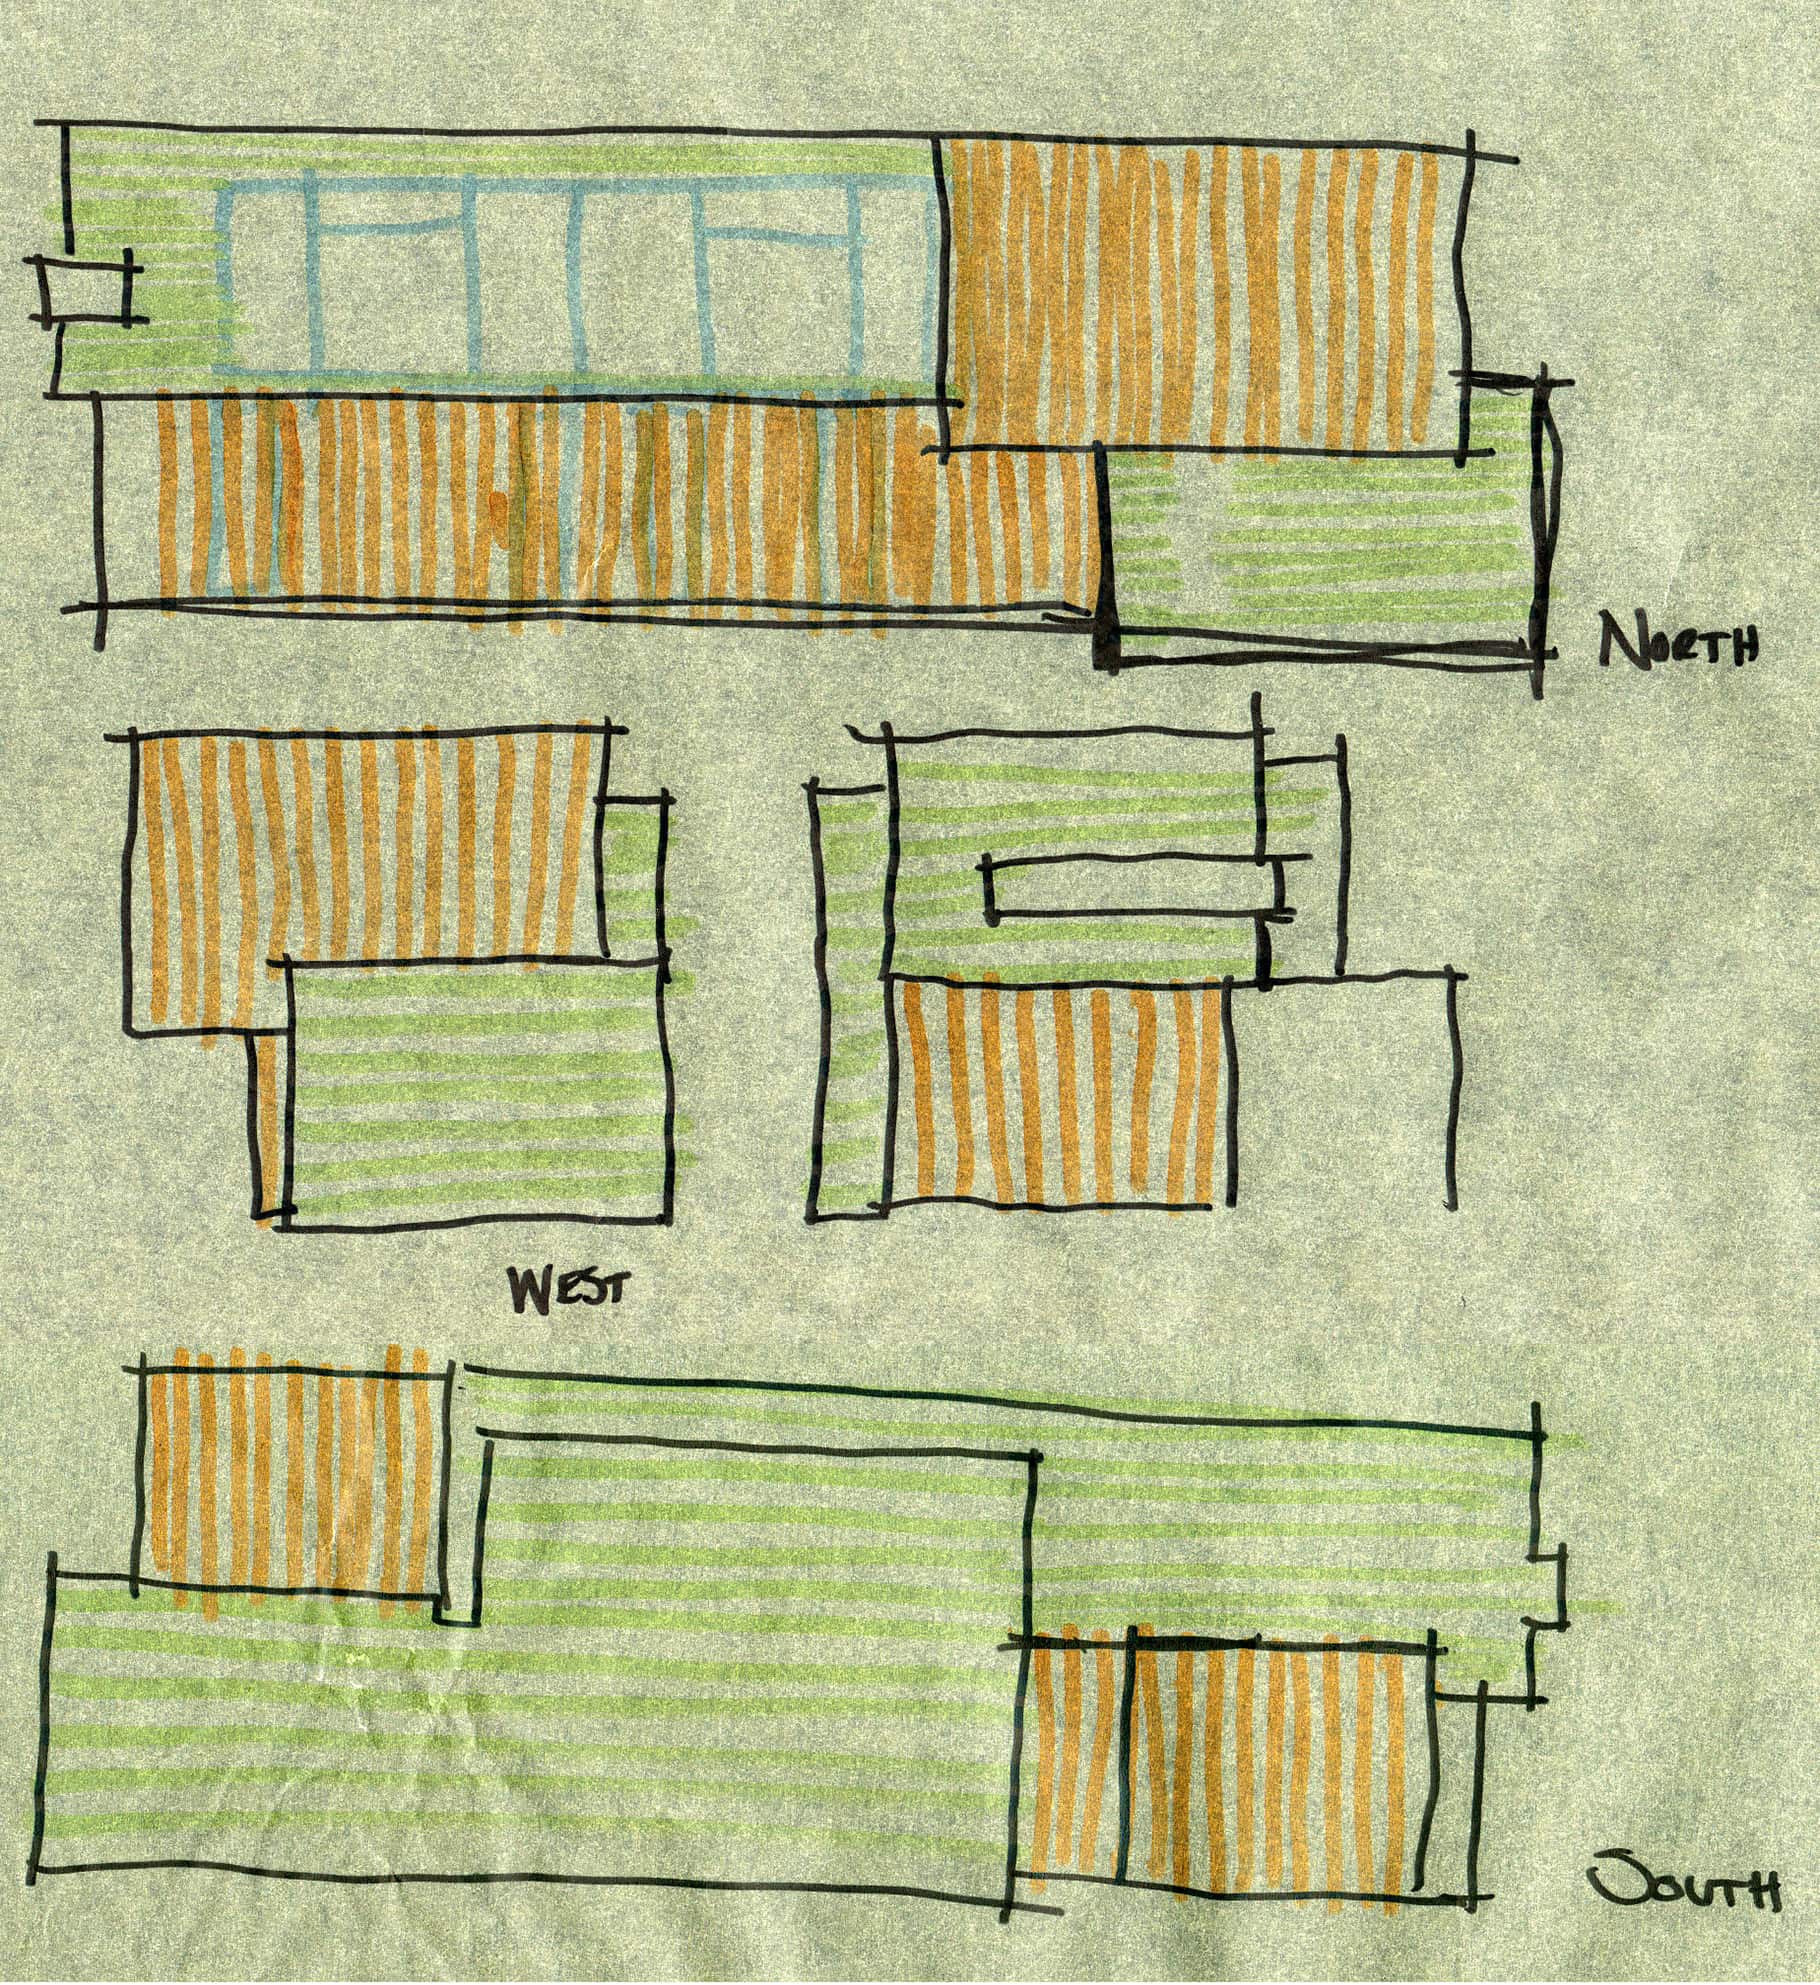 NORTH
WEST
SOUTH